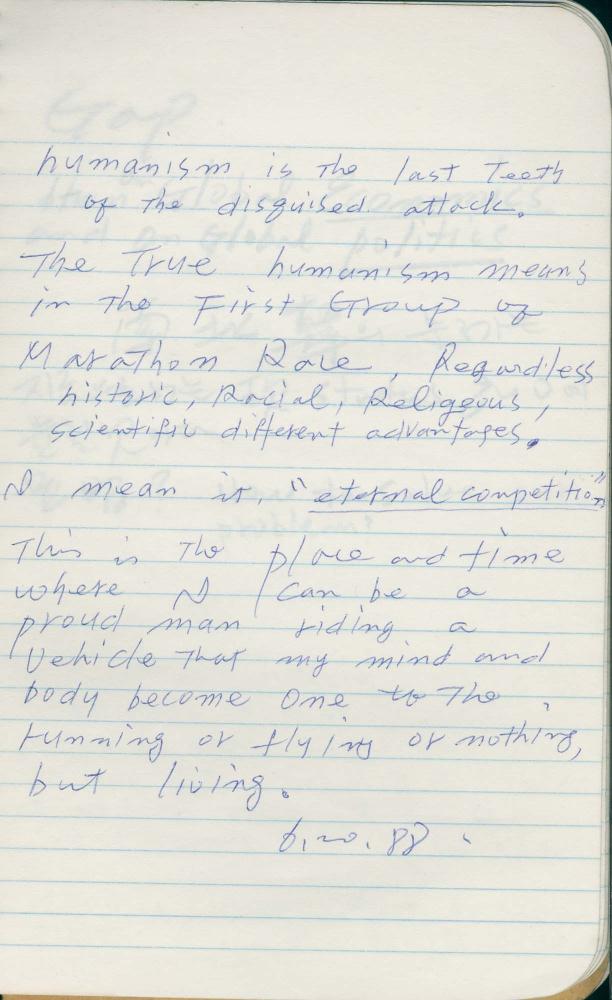 humanism is The last Teeth
of The disguised attack.
The True humanism means
in The First Group of
Marathon Race, Regardless
historic, Racial, Religeous,
scientific different advantages.
I mean it, "eternal competition"
This is The place and time
where I can be a
proud man riding a
Vehicle That my mind and
body become one to The
running or flying or nothing,
but living.
6.20.88.